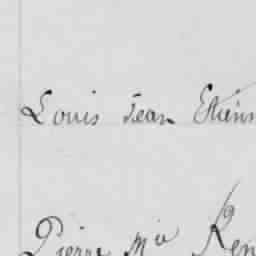 Louis Jean Etiens
Pierre Mie Ren